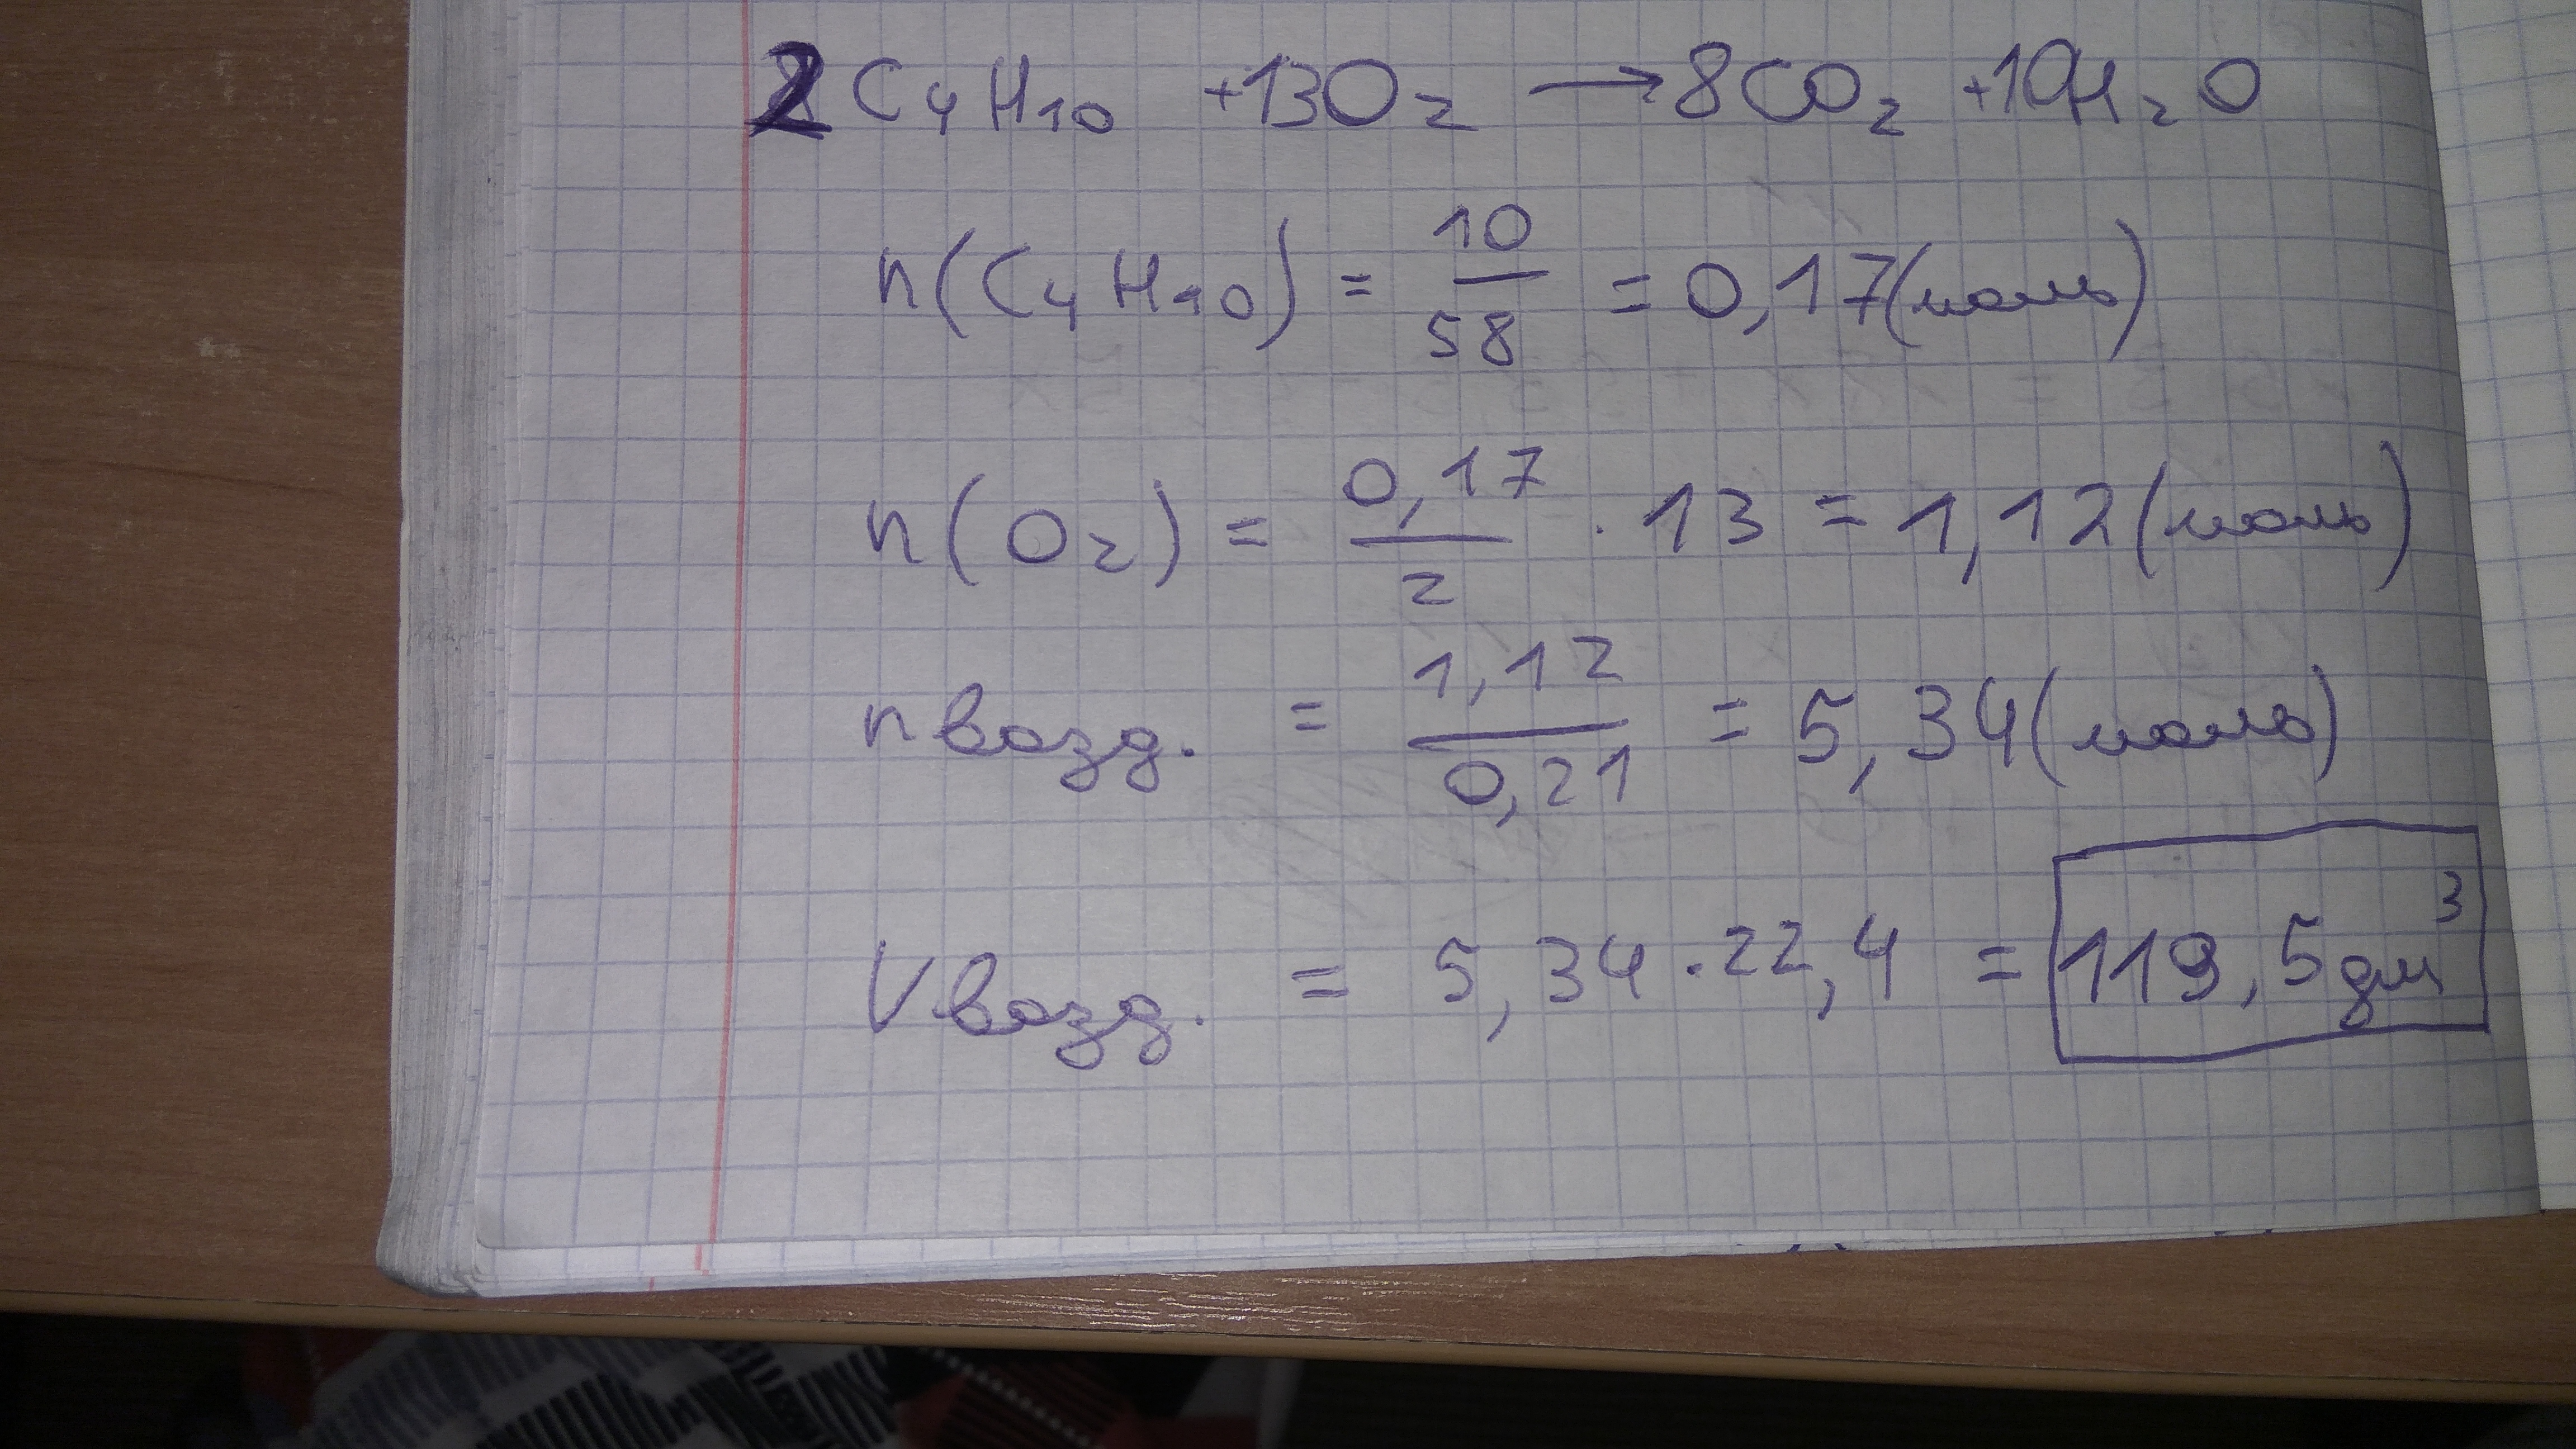 2C₄H₁₀ +13O₂ → 8CO₂ +10H₂O
n(C₄H₁₀) = 10/58 = 0,17(моль)
n(O₂) = 0,17/2 · 13 = 1,12(моль)
nвозд. = 1,12/0,21 = 5,34(моль)
Vвозд. = 5,34·22,4 = 119,5дм³